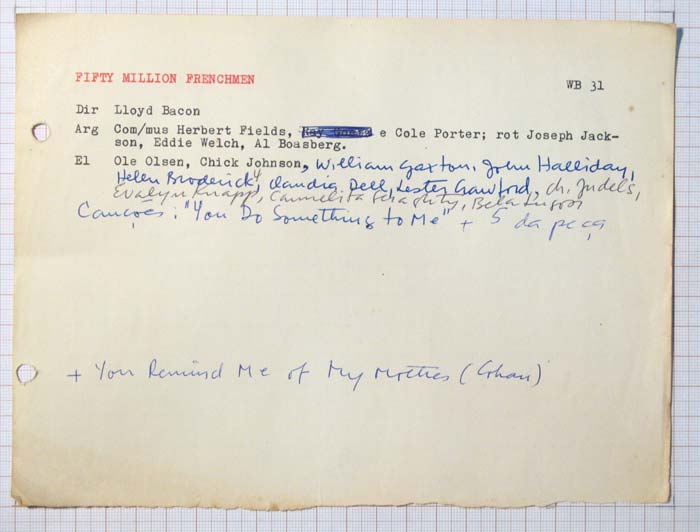 FIFTY MILLION FRENCHMEN
WB 31
Dir Lloyd Bacon
Arg Com/mus Herbert Fields, e Cole Porter; rot Joseph Jack-
son, Eddie Welch, Al Boasberg.
El Ole Olsen, Chick Johnson, William Gaxton, John Halliday,
Helen Broderick, Claudia Dell, Lester Crawford, Ch. Judels,
Evalyn Knapp, Carmelita Geraghty, Bela Lugosi
Canções: "You Do Something to Me" + 5 da peça
+ You Remind Me of My Mother (Cohan)